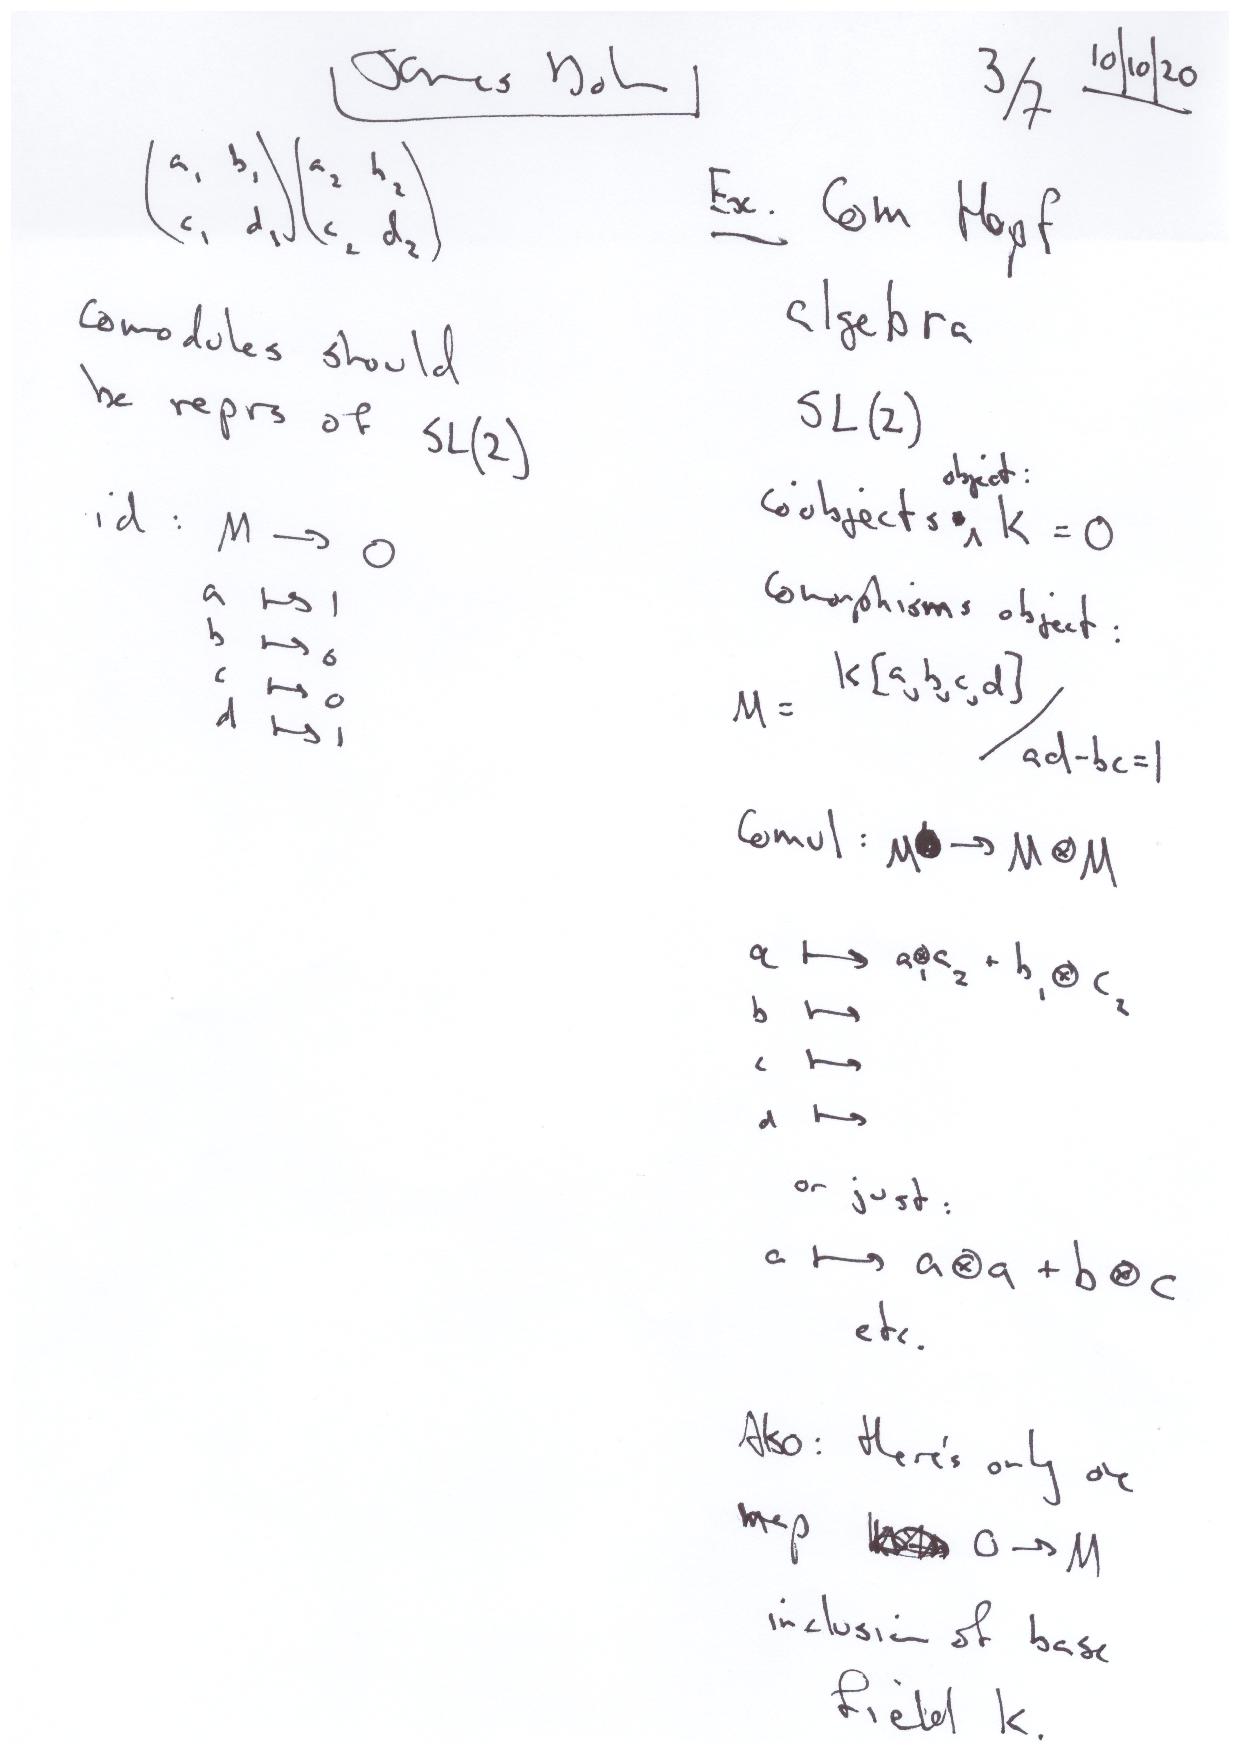 James Dol
3/7 10/10/20
( a₁ b₁ ) ( a₂ b₂ )
( c₁ d₁ ) ( c₂ d₂ )
Comodules should
be reprs of SL(2)
id : M → O
a ↦ 1
b ↦ 0
c ↦ 0
d ↦ 1
Ex. Com Hopf
algebra
SL(2)
Coobjects object: k = O
Comorphisms object:
M = k[a,b,c,d] / ad-bc=1
Comul : M → M ⊗ M
a ↦ a₁⊗a₂ + b₁⊗c₂
b ↦
c ↦
d ↦
or just:
a ↦ a⊗a + b⊗c
etc.
Also: there's only one
map O → M
inclusion of base
field k.